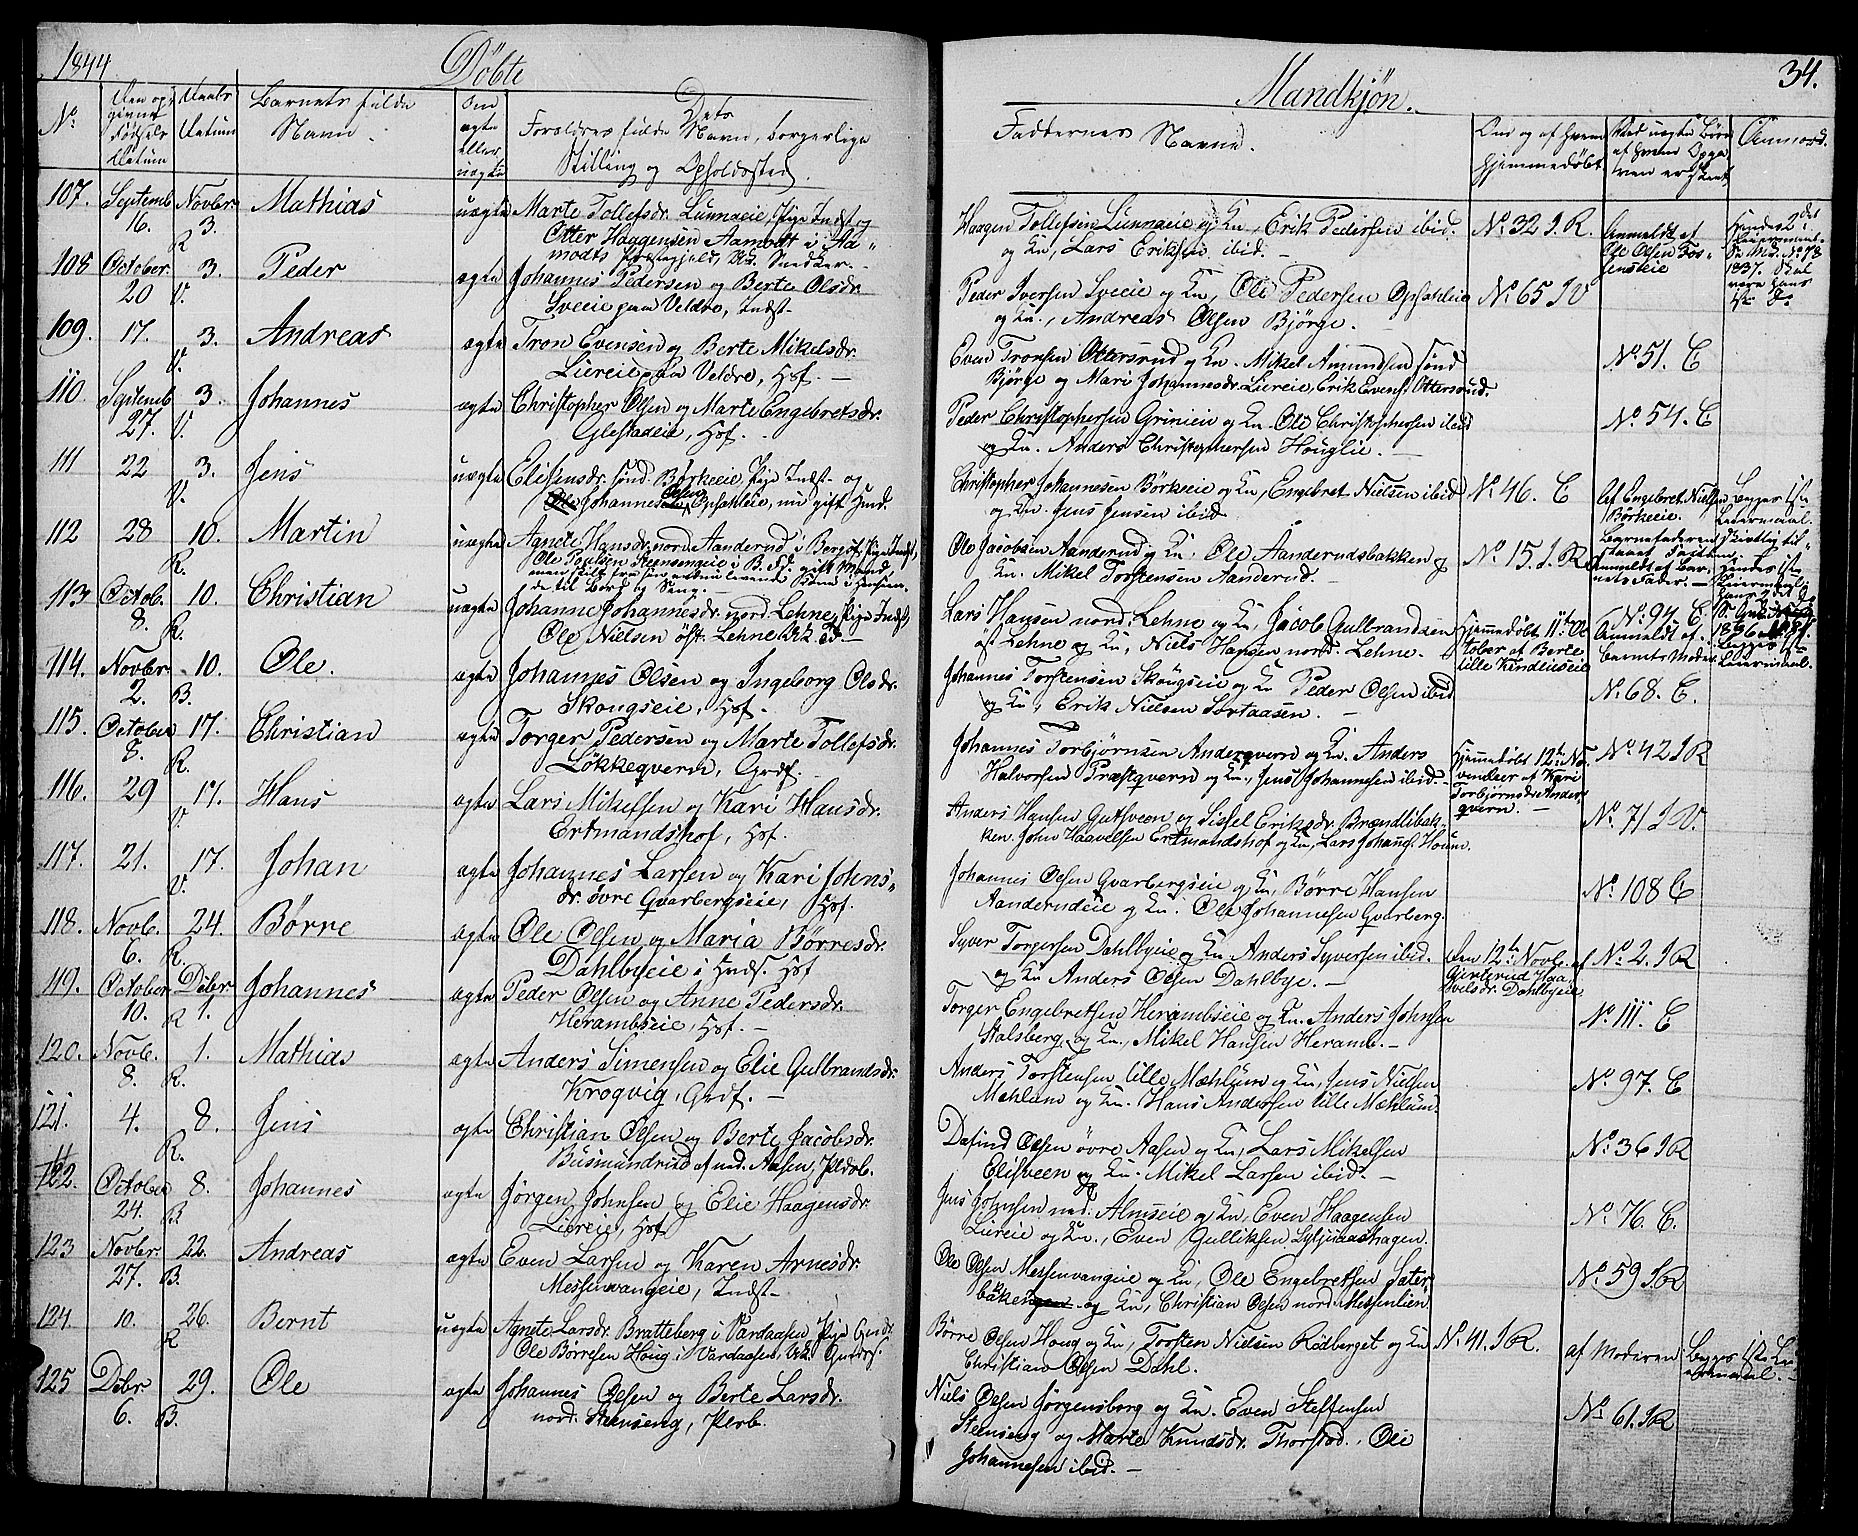 1844
Döbte
Mandkjön.
34.
No.
Den op-
givne
Fødsels
Datum
Daabs
Datum
Barnets fulde
Navn.
Om
ægte
eller
uægte
Dets
Foreldres fulde Navn, borgerlige
Stilling og Opholdssted.
Faddernes Navne.
Om og af hvem
hjemmedøbt
Ved uægte Børn
af hvem Opga-
ven er skeet
Anmærk.
107. Septemb. Novbr. Mathias uægte Marte Tollefsdr. Lunnaeie, Pige Indst og
16. 3. Otter Haagensen Aamodt i Aa-
R modts Præstegjeld, Uk. Snedker.
Haagen Tollefsen Lunnaeie og Kn, Erik Pedersen ibid.
og Kn, Lars Eriksen ibid.
No. 32 I R.
Anmeldt af
Ole Olsen Fos-
senseie
Hendes 2det
Leiermaal.
Se No. 78
1837.
108 October 3. Peder ægte Johannes Pedersen og Berte Olsdr.
20 V. Sveeie paa Veldre, Indst.
Peder Iversen Sveeie og Kn, Ole Pedersen Opsahleie
og Kn., Andreas Olsen Bjørge.
No. 65 I V
109. 17. 3. Andreas ægte Tron Evensen og Berte Mikelsdr.
V. Liereie paa Veldre, Hsf.
Even Tronsen Ottersrud og Kn. Mikel Amundsen sønd
Bjørge og Mari Johannesdr. Liereie, Erik Evens. Ottersrud.
No. 51. C
110. Septemb 3. Johannes ægte Christopher Olsen og Marte Engebretsdr.
27. V. Glestadeie, Hsf.
Peder Christophersen Grinieie og Kn. Ole Christophersen ibid
og Kn. Anders Christophersen Houglie.
No. 54. C
111 22 3. Jens uægte Elisensdr. sønd. Børkeeie, Pige Indst. og
V. Ole Johannes Olsen Opsahleie, nu gift Hmd.
Christopher Johannesen Börkeeie og Kn, Engebret Nielsen ibid
og Kn. Jens Jensen ibid.
No. 46. C
Af Engebret Nielsen
Børkeeie.
Begges 1ste
Leiermaal.
112 28 10. Martin uægte Agnete Hansdr. nord. Aanderud i Berg
R. Ole Paulsen Steensengeie i B.
Ole Jacobsen Aanderud og Kn, Ole Aanderudsbakken og
Kn. Mikel Torstensen Aanderud.
No. 15. I R
Anmeldt af Bar-
nets Fader.
113 Octob. 10. Christian uægte Johanne Johannesdr. nord. Lehne, Pige Indst,
8. R. Ole Nielsen öst. Lehne Uk.
Lars Hansen nord. Lehne og Kn, Jacob Gulbrandsen
öst Lehne og Kn, Niels Hansen nord. Lehne.
Hjemmedøbt 11te Oc-
tober af Berte
lille Kindlieseie
No. 94. C
Anmeldt af
barnets Moder
Leiermaal.
114. Novbr 10. Ole. ægte Johannes Olsen og Ingeborg Olsdr.
2. B. Skougseie, Hsf.
Johannes Torstensen Skougseie og Kn Peder Olsen ibid
og Kn, Erik Nielsen Sortaasen.
No. 68. C.
115. October 17. Christian ægte Torger Pedersen og Marte Tollefsdr.
8. R. Løkkeqvern, Grdf.
Johannes Torbjørnsen Anderqvern og Kn. Anders
Halvorsen Præstqvern og Kn., Jens Johannesen ibid.
Hjemmedøbt 12te No-
vember af Kari
Torbjørnsdr. Ander-
qvern.
No. 42 I R
116. 29 17. Hans ægte Lars Mikelsen og Kari Hansdr.
V. Ertmandshof, Hsf.
Anders Hansen Gutsveen og Sissel Eriksdr. Brændlibak-
ken. John Haavelsen Ertmandshof og Kn, Lars Johans. Houm.
No. 71 I V.
117. 21. 17. Johan ægte Johannes Larsen og Kari Johns-
V. dr. övre Qvarbergseie, Hsf.
Johannes Olsen Qvarbergseie og Kn, Børre Hansen
Aanderudeie og Kn. Ole Johannesen Qvarberg.
No. 108 C
118. Novb. 24. Børre ægte Ole Olsen og Maria Børresdr.
6. R. Dahlbyeie i Huds. Hsf
Syver Torgersen Dahlbyeie og Kn. Anders Syversen ibid.
og Kn Anders Olsen Dahlbye.
Den 12te Novb. af
Gjerterud Haa-
velsdr. Dahlbyeie
No. 2. I R
119. October Decbr Johannes ægte Peder Olsen og Anne Pedersdr.
10. R 1. Herambseie, Hsf.
Torger Engebretsen Herambseie og Kn. Anders Johnsen
Stalsberg og Kn., Mikel Hansen Heramb.
No. 111. C
120. Novb. 1. Mathias ægte Anders Simensen og Elie Gulbrandsdr.
8. R. Krogvig, Grdf.
Anders Torstensen lille Mæhlum og Kn, Jens Nielsen
Mæhlum og Kn. Hans Andersen lille Mæhlum.
No. 97. C
121. 4. 8. Jens ægte Christian Olsen og Berte Jacobsdr.
R. Busmundrud af ned. Aasen, Pldsb.
Dafind Olsen övre Aasen og Kn, Lars Mikelsen
Elisveen og Kn. Mikel Larsen ibid.
No. 36 I R
122. October 8. Johannes ægte Jørgen Johnsen og Elie Haagensdr.
24. B. Liereie, Hsf
Jens Johnsen ned. Almseie og Kn, Even Haagensen
Liereie og Kn., Even Gulliksen Syljuaashagen.
No. 76. C.
123 Novbr. 22. Andreas ægte Even Larsen og Karen Arnesdr.
27. B. Messenvangeie, Indst
Ole Olsen Messenvangeie og Kn, Ole Engebretsen Sæter-
bakken og Kn, Christian Olsen nord. Messenlien.
No. 59 I R
124. 10. 26. Bernt uægte Agnete Larsdr. Bratteberg i Vardaasen, Pige Grds.
R Ole Børresen Houg i Vardaasen, Uk. Grdbrs.
Børre Olsen Houg og Kn, Torsten Nielsen Rødberget og Kn
Christian Olsen Dahl.
No. 41. I R.
af Moderen
Begges 1ste Lei-
ermaal.
125 Decbr 29. Ole ægte Johannes Olsen og Berte Larsdr.
6. B. nord. Steenseng, Plsb.
Niels Olsen Jørgensborg og Kn. Even Steffensen
Steenseng og Marte Knudsdr. Thorstad., Ole
Johannesen ibid.
No. 61. I R